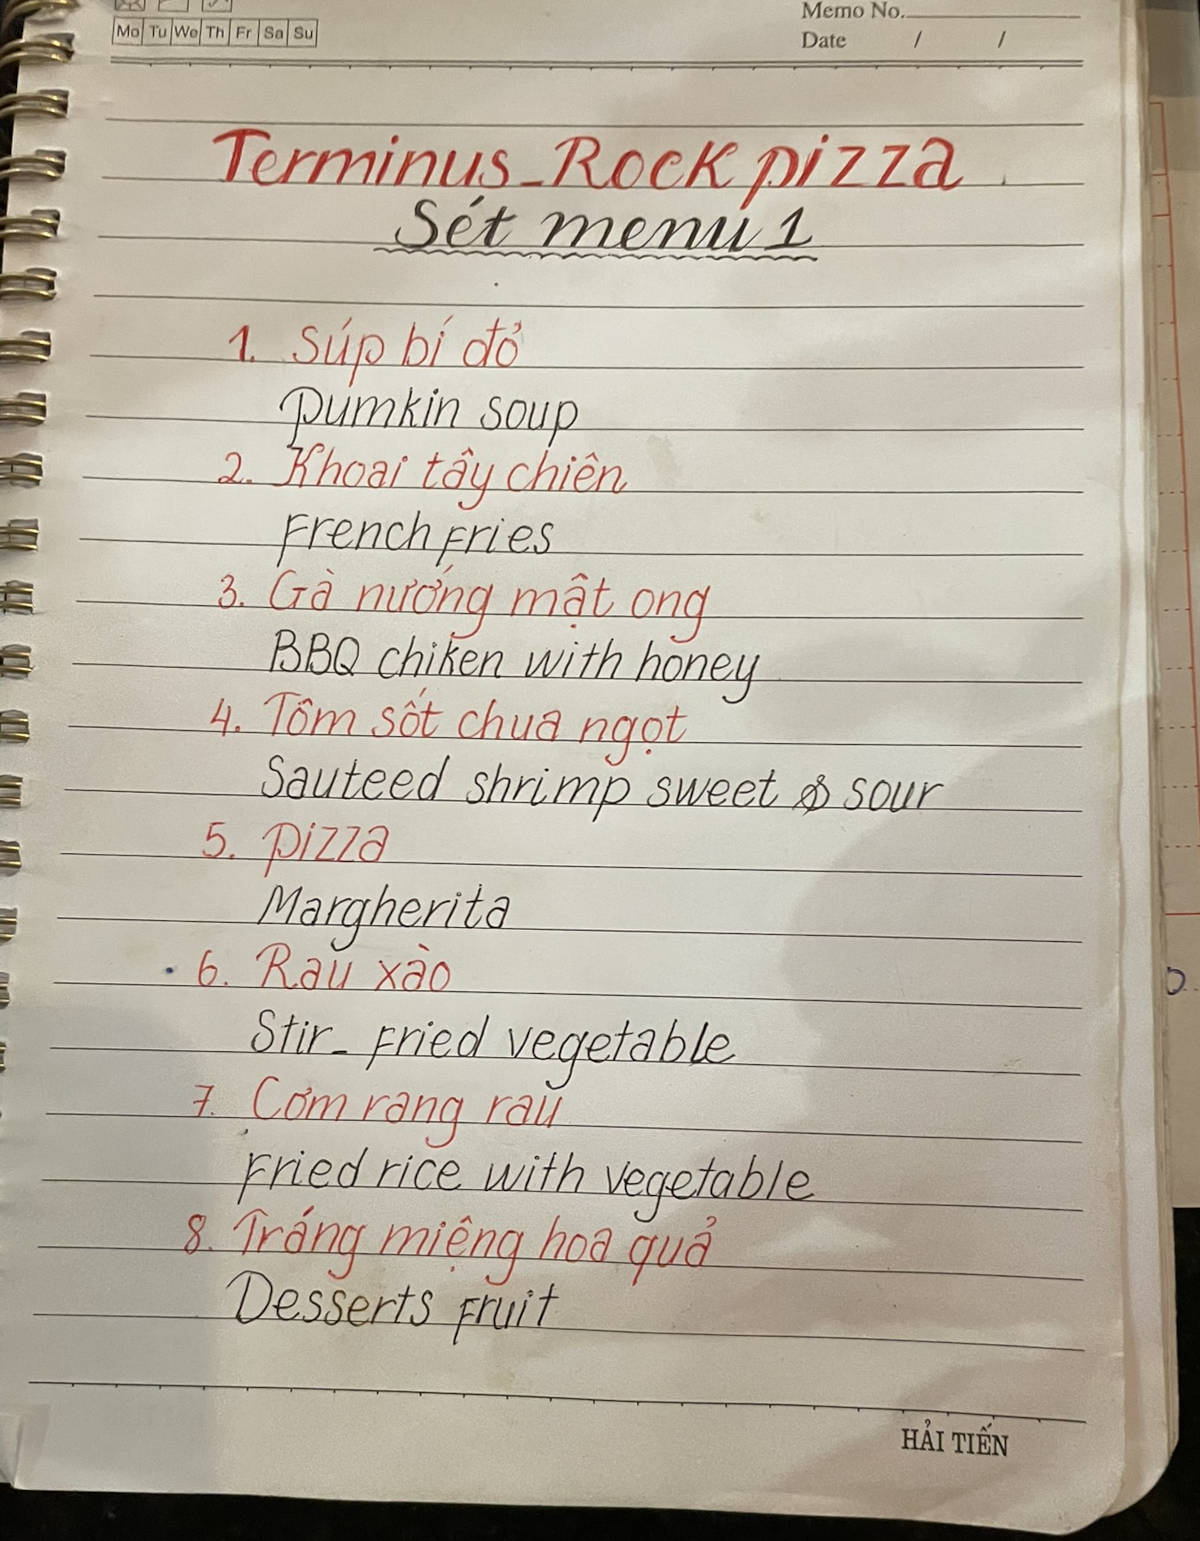 Memo No.
Mo Tu We Th Fr Sa Su
Date / /
Terminus_Rock pizza
Sét menu 1
1. Súp bí đỏ
pumkin soup
2. Khoai tây chiên
French Fries
3. Gà nướng mật ong
BBQ chiken with honey
4. Tôm sốt chua ngọt
Sauteed shrimp sweet & sour
5. pizza
Margherita
6. Rau xào
Stir_Fried vegetable
7. Cơm rang rau
Fried rice with vegetable
8. Tráng miệng hoa quả
Desserts Fruit
HẢI TIẾN